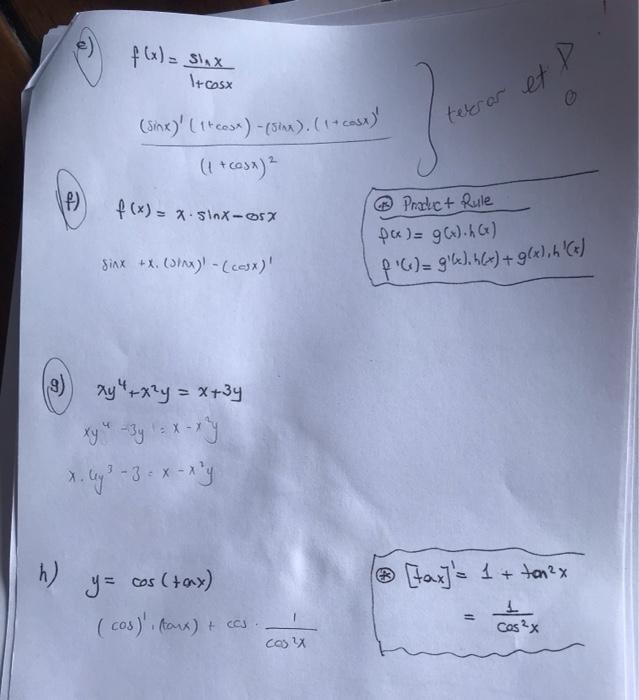 e) f(x) = sinx / 1+cosx
(sinx)' (1+cosx) - (sinx). (1+cosx)' / (1+cosx)²
tekrar et !
f) f(x) = x. sinx - cosx
sinx + x. (sinx)' - (cosx)'
⊛ Product Rule
f(x) = g(x).h(x)
f'(x) = g'(x).h(x) + g(x).h'(x)
g) xy⁴ + x²y = x+3y
xy⁴ - 3y = x - x²y
x. 4y³ - 3 = x - x²y
h) y = cos(tanx)
(cos)'. (tanx) + cos . 1 / cos²x
⊛ [tax]' = 1 + tan²x
= 1 / cos²x